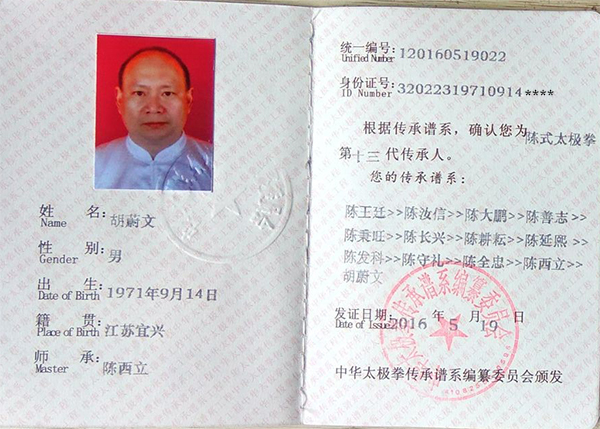 姓 名: 胡蔚文
Name
性 别: 男
Gender
出 生:
Date of Birth 1971年9月14日
籍 贯:
Place of Birth 江苏宜兴
师 承:
Master 陈西立
统一编号: 120160519022
Unified Number
身份证号: 32022319710914****
ID Number
根据传承谱系，确认您为陈式太极拳
第十三代传承人。
您的传承谱系：
陈王廷>>陈汝信>>陈大鹏>>陈善志>>
陈秉旺>>陈长兴>>陈耕耘>>陈延熙>>
陈发科>>陈守礼>>陈全忠>>陈西立>>
胡蔚文
发证日期: 2016 年 5 月 19 日
Date of Issue
中华太极拳传承谱系编纂委员会颁发